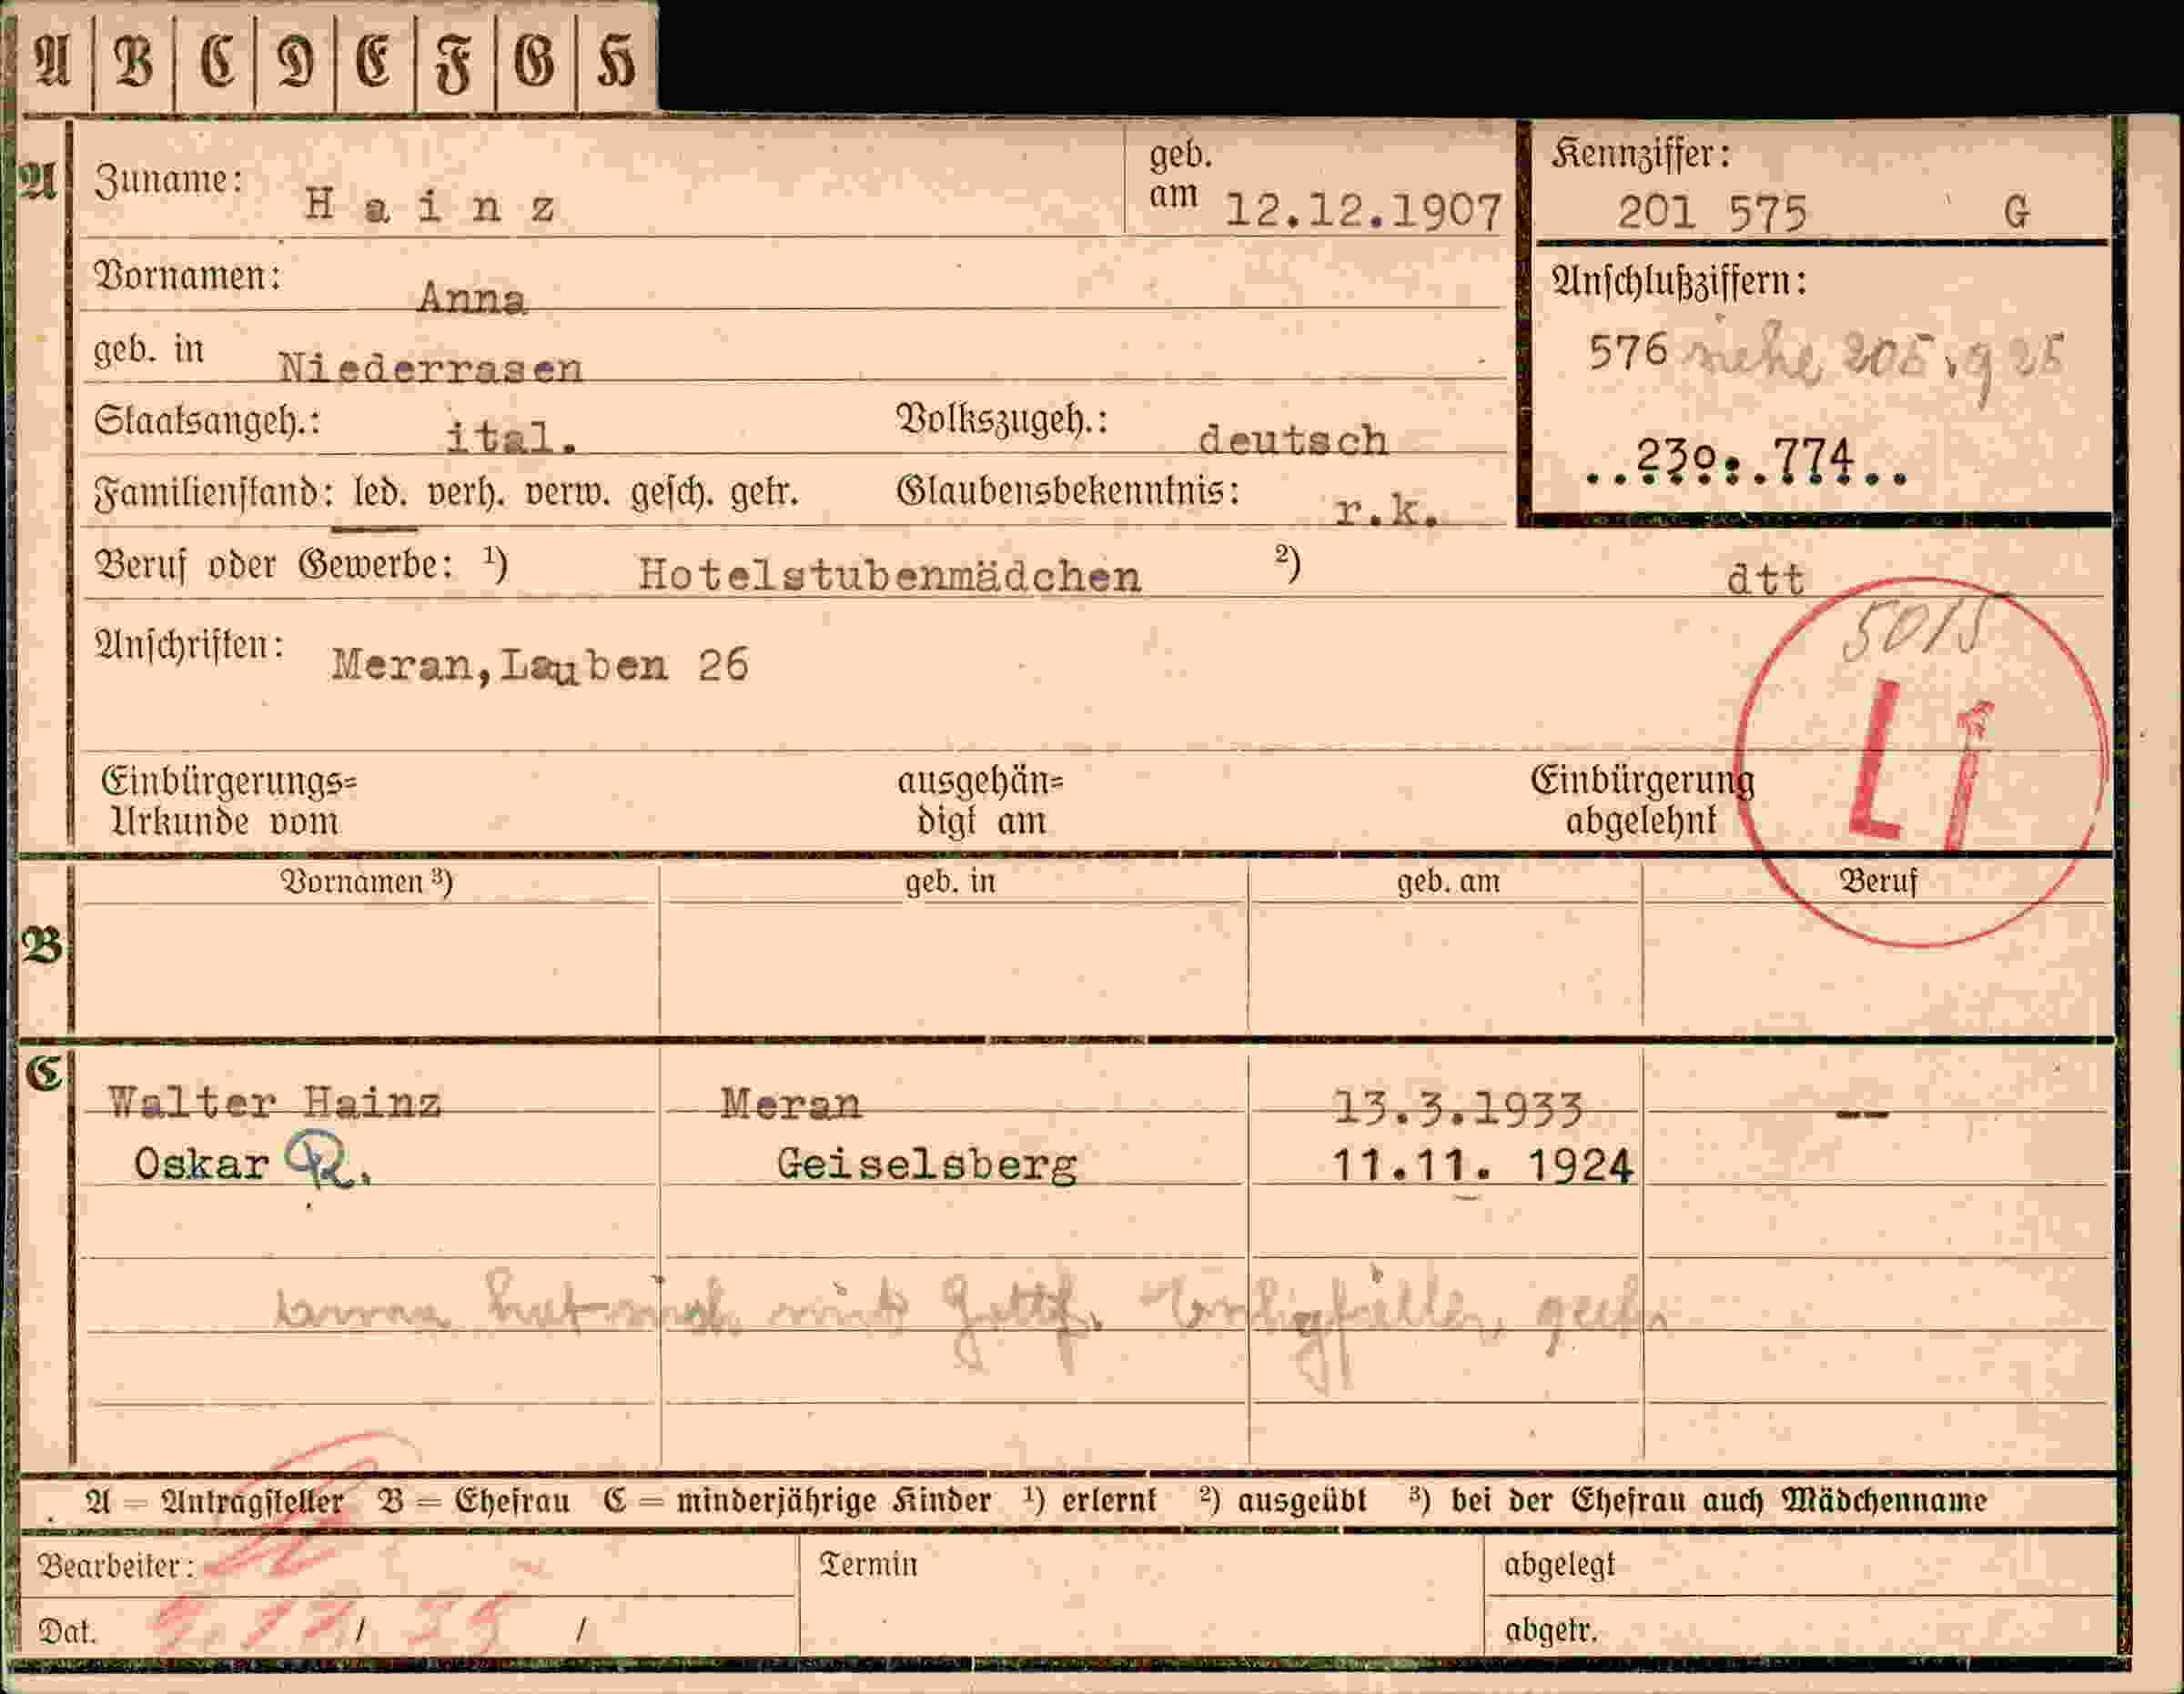 A B C D E F G H
A
Zuname: Hainz
geb. am 12.12.1907
Kennziffer:
201 575 G
Vornamen: Anna
Anschlußziffern:
geb. in Niederrasen
576 siehe 205.925
Staatsangeh.: ital. Volkszugeh.: deutsch
..230..774..
Familienstand: led. verh. verw. gesch. getr. Glaubensbekenntnis: r.k.
Beruf oder Gewerbe: 1) Hotelstubenmädchen 2) dtt
Anschriften: Meran, Lauben 26
Li
Einbürgerungs= ausgehän= Einbürgerung
Urkunde vom digt am abgelehnt
B
Vornamen 3) geb. in geb. am Beruf
C
Walter Hainz Meran 13.3.1933 --
Oskar R. Geiselsberg 11.11. 1924
A = Antragsteller B = Ehefrau C = minderjährige Kinder 1) erlernt 2) ausgeübt 3) bei der Ehefrau auch Mädchenname
Bearbeiter: Termin abgelegt
Dat. / / abgetr.